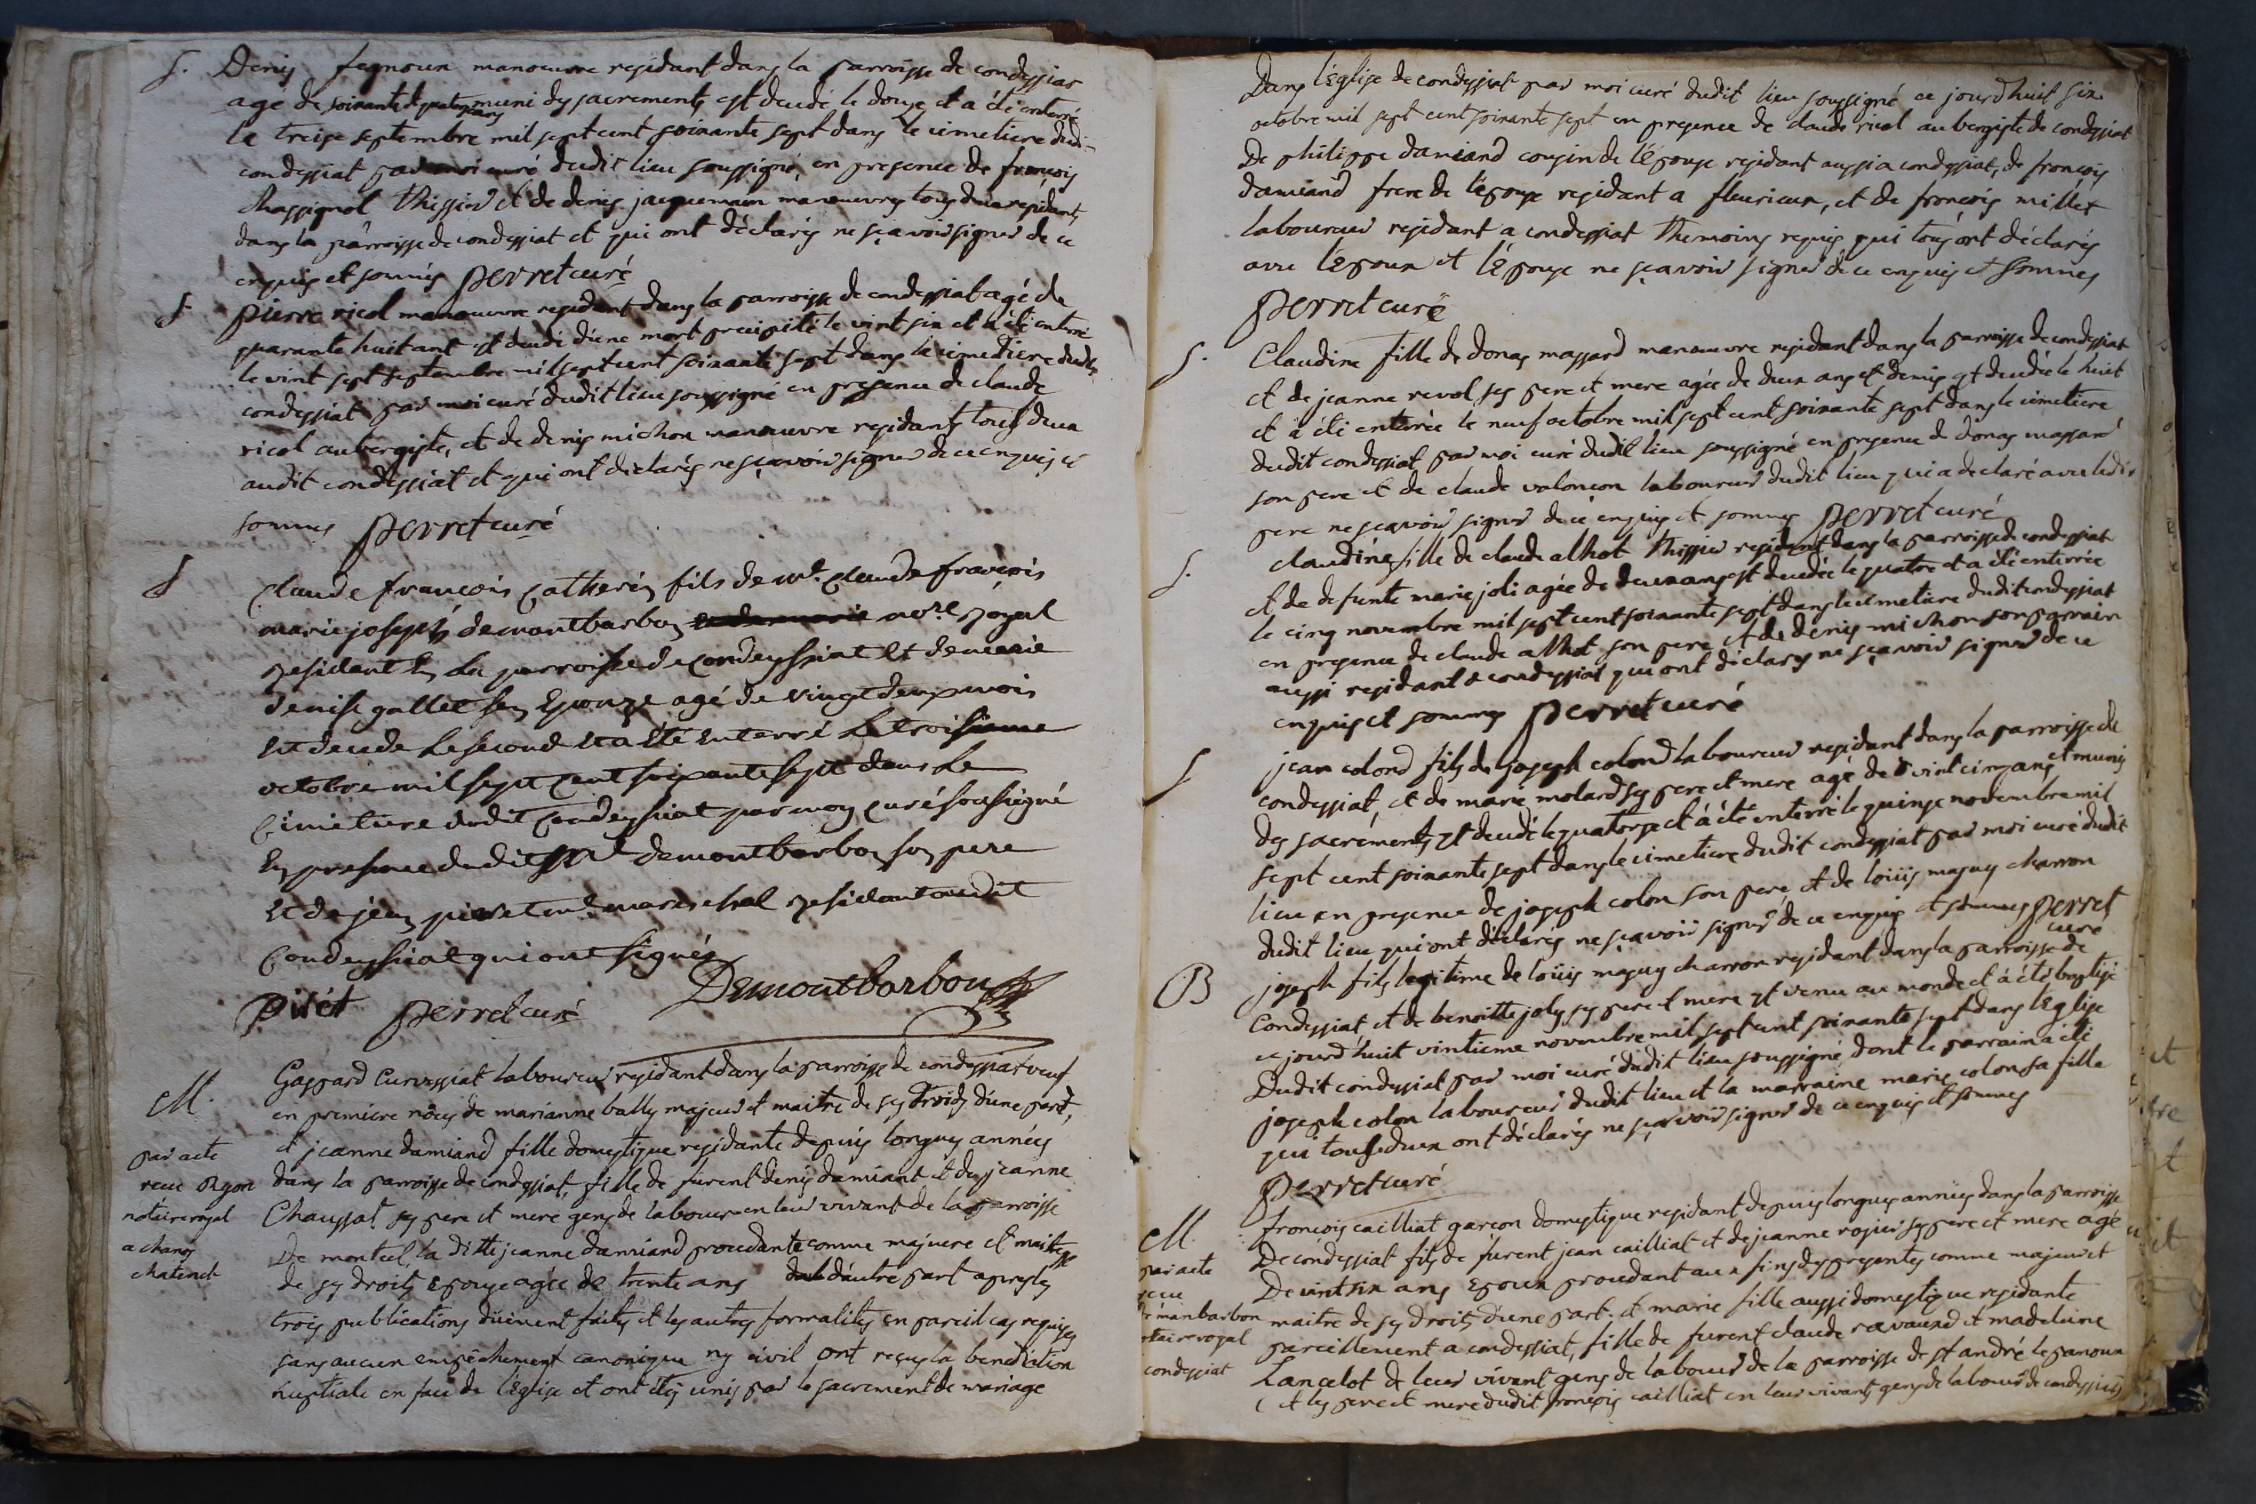 S. Denis fagnoux manoeuvre residant dans la parroisse de condeyssiat
agé de soixante et quatorze ans muni des sacrements est decedé le douze et a été enterré
le treize septembre mil sept cent soixante sept dans le cimetiere dudit
condeyssiat par moi curé dudit lieu soussigné, en presence de françois
Chassignol thissier et de denis jacquemin manoeuvres tous deux residants
dans la parroisse de condeyssiat et qui ont déclarés ne sçavoir signer de ce
enquis et sommés Perret curé
S. pierre ricol manoeuvre residant dans la parroisse de condeyssiat agé de
quarante huit ant est decedé d'une mort precipité le vint six et a été enterré
le vint sept septembre mil sept cent soixante sept dans le cimetiere dudit
condeyssiat par moi curé dudit lieu soussigné en presence de claude
ricol aubergiste, et de denis michon manoeuvre residants tous deux
audit condeyssiat et qui ont déclarés ne sçavoir signer de ce enquis et
sommes Perret curé
S Claude françois Catherin fils de mr. Claude françois
marie joseph demontbarbon nore. Royal
Residant En La parroisse de Condeyssiat Et de marie
denise gallet son Epouze agé de vingt deux mois
Est decedé Le second Et a Eté Enterré Le troisieme
octobre mil sept Cent soixante sept dans Le
Cimetiere dudit Condeyssiat par moy Curé soussigné
En presence dudit sr demontbarbon son pere
Et de jean pivet md. mareschal Residant audit
Condeyssiat qui ont signés
Pivét Perret curé Demontbarbon
M. Gaspard Curveyssiat laboureur residant dans la parroisse de condeyssiat veuf
en premiere noces de marianne bally majeur et maitre de ses droits d'une part,
et jeanne damiand fille domestique residante depuis longues années
dans la parroisse de condeyssiat, fille de furent denis damiant et de jeanne
Chaussat ses pere et mere gens de labour en leur vivant de la parroisse
De montcel, la ditte jeanne damiand procedante comme majeure et maitresse
de ses droits epouse agée de trente ans d'autre part apres les
trois publications duement faites et les autres formalités en pareil cas requises
sans aucun empêchement canonique ny civil ont reçus la benediction
nuptiale en face de l'eglise et ont étés unis par le sacrement de mariage
par acte
reçu
notaire royal
a chanoz
chatenet
Dans l'Eglise de condeyssiat par moi curé dudit lieu soussigné ce jourd'huit six
octobre mil sept cent soixante sept en presence de claude ricol aubergiste de condeyssiat
De philippe damiand cousin de l'épouse residant aussi a condeyssiat, de françois
damiand frere de l'épouse residant a fleurieux, et de françois millet
laboureur residant a condeyssiat themoins requis qui tous ont déclarés
avec l'epoux et l'épouse ne sçavoir signer de ce enquis et sommes
Perret curé
S. Claudine fille de donas massard manoeuvre residant dans la parroisse de condeyssiat
et de jeanne revol ses pere et mere agée de deux ans et demis est decedée le huit
et a été enterrée le neuf octobre mil sept cent soixante sept dans le cimetiere
dudit condeyssiat par moi curé dudit lieu soussigné en presence de donas massard
son pere et de claude valonçon laboureur dudit lieu qui a declaré avec ledit
pere ne sçavoir signer de ce enquis et sommes Perret curé
S. claudine fille de claude alhot thissier residant dans la parroisse de condeyssiat
et de defunte marie joli agée de deux ans est decedée le quatre et a été enterrée
le cinq novembre mil sept cent soixante sept dans le cimetiere dudit condeyssiat
en presence de claude alhot son pere et de denis michon son parrain
aussi residant a condeyssiat qui ont déclarés ne sçavoir signer de ce
enquis et sommes Perret curé
S jean colond fils de joseph colond laboureur residant dans la parroisse de
condeyssiat, et de marie molard ses pere et mere agé de vint cinq ans et munis
des sacrements est decedé le quatorze et a été enterré le quinze novembre mil
sept cent soixante sept dans le cimetiere dudit condeyssiat par moi curé dudit
lieu en presence de joseph colon son pere, et de loüis maguy charron
dudit lieu qui ont déclarés ne sçavoir signer de ce enquis et sommes Perret
curé
B joseph fils legitime de loüis maguy charron residant dans la parroisse de
Condeyssiat et de benoitte joly ses pere et mere est venu au monde et a été baptisé
ce jourd'huit vintieme novembre mil sept cent soixante sept dans l'Eglise
Dudit condeyssiat par moi curé dudit lieu soussigné, dont le parrain a été
joseph colon laboureur dudit lieu et la marraine marie colon sa fille
qui tous deux ont déclarés ne sçavoir signer de ce enquis et sommes
Perret curé
M. françois cailliat garcon domestique residant depuis longues années dans la parroisse
De condeyssiat fils de furent jean cailliat et de jeanne rosier ses pere et mere agé
De vint six ans epoux procedant aux fins des presentes comme majeur et
maitre de ses droits d'une part. et marie fille aussi domestique residante
pareillement a condeyssiat, fille de furent claude ravaund et madelaine
Lancelot de leur vivant gens de labour de la parroisse de st andré le panoux
(et les pere et mere dudit françois cailliat en leur vivants gens de labour de condeyssiat)
par acte
reçu
demanbarbon
notaire royal
condeyssiat